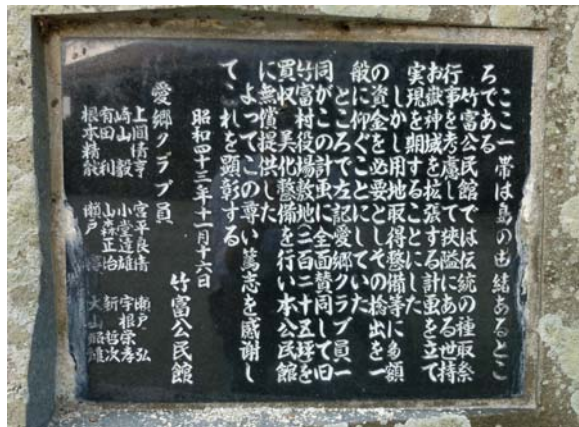 ここ一帯は島の由緒あるとこ
ろである
竹富公民館では伝統の種取祭
行事を考慮して狭隘にある世持
お嶽神域を拡張する計画を立て
実現を期することにした
しかし用地取得整備等に多額
の資金を必要としその捻出を一
般に仰ぐことにしていた
ところで左記愛郷クラブ員一
同がこの計画に全面賛同して旧
竹富村役場敷地二百二十五坪を
買収 美化整備を行い本公民館
に無償提供した
よってこの尊い篤志を感謝し
てこれを顕彰する
昭和四十三年十二月十六日
竹富公民館
愛郷クラブ員
上間清亨 宮平良清 瀬戸 弘
崎山 毅 小堂達雄 宇根栄孝
有田 利 山森正治 新 哲次
根本精能 瀬戸 大山